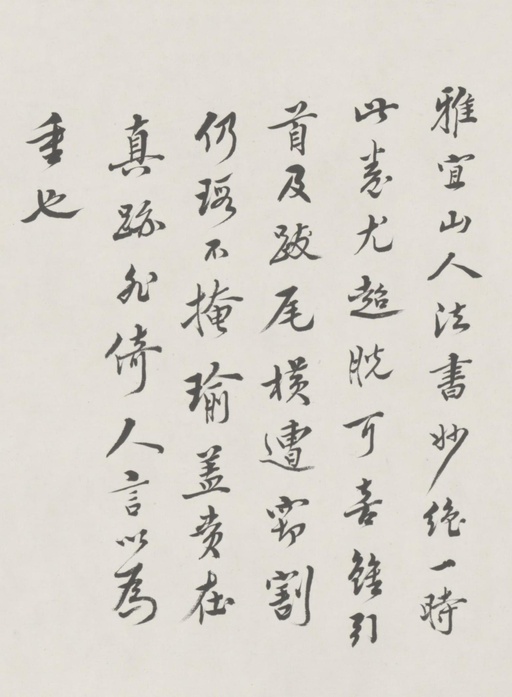 雅宜山人法書妙絕一時
此卷尤超脫可喜雖引
首及跋尾橫遭割
仍瑕不掩瑜蓋貴在
真跡不倚人言以為
重也